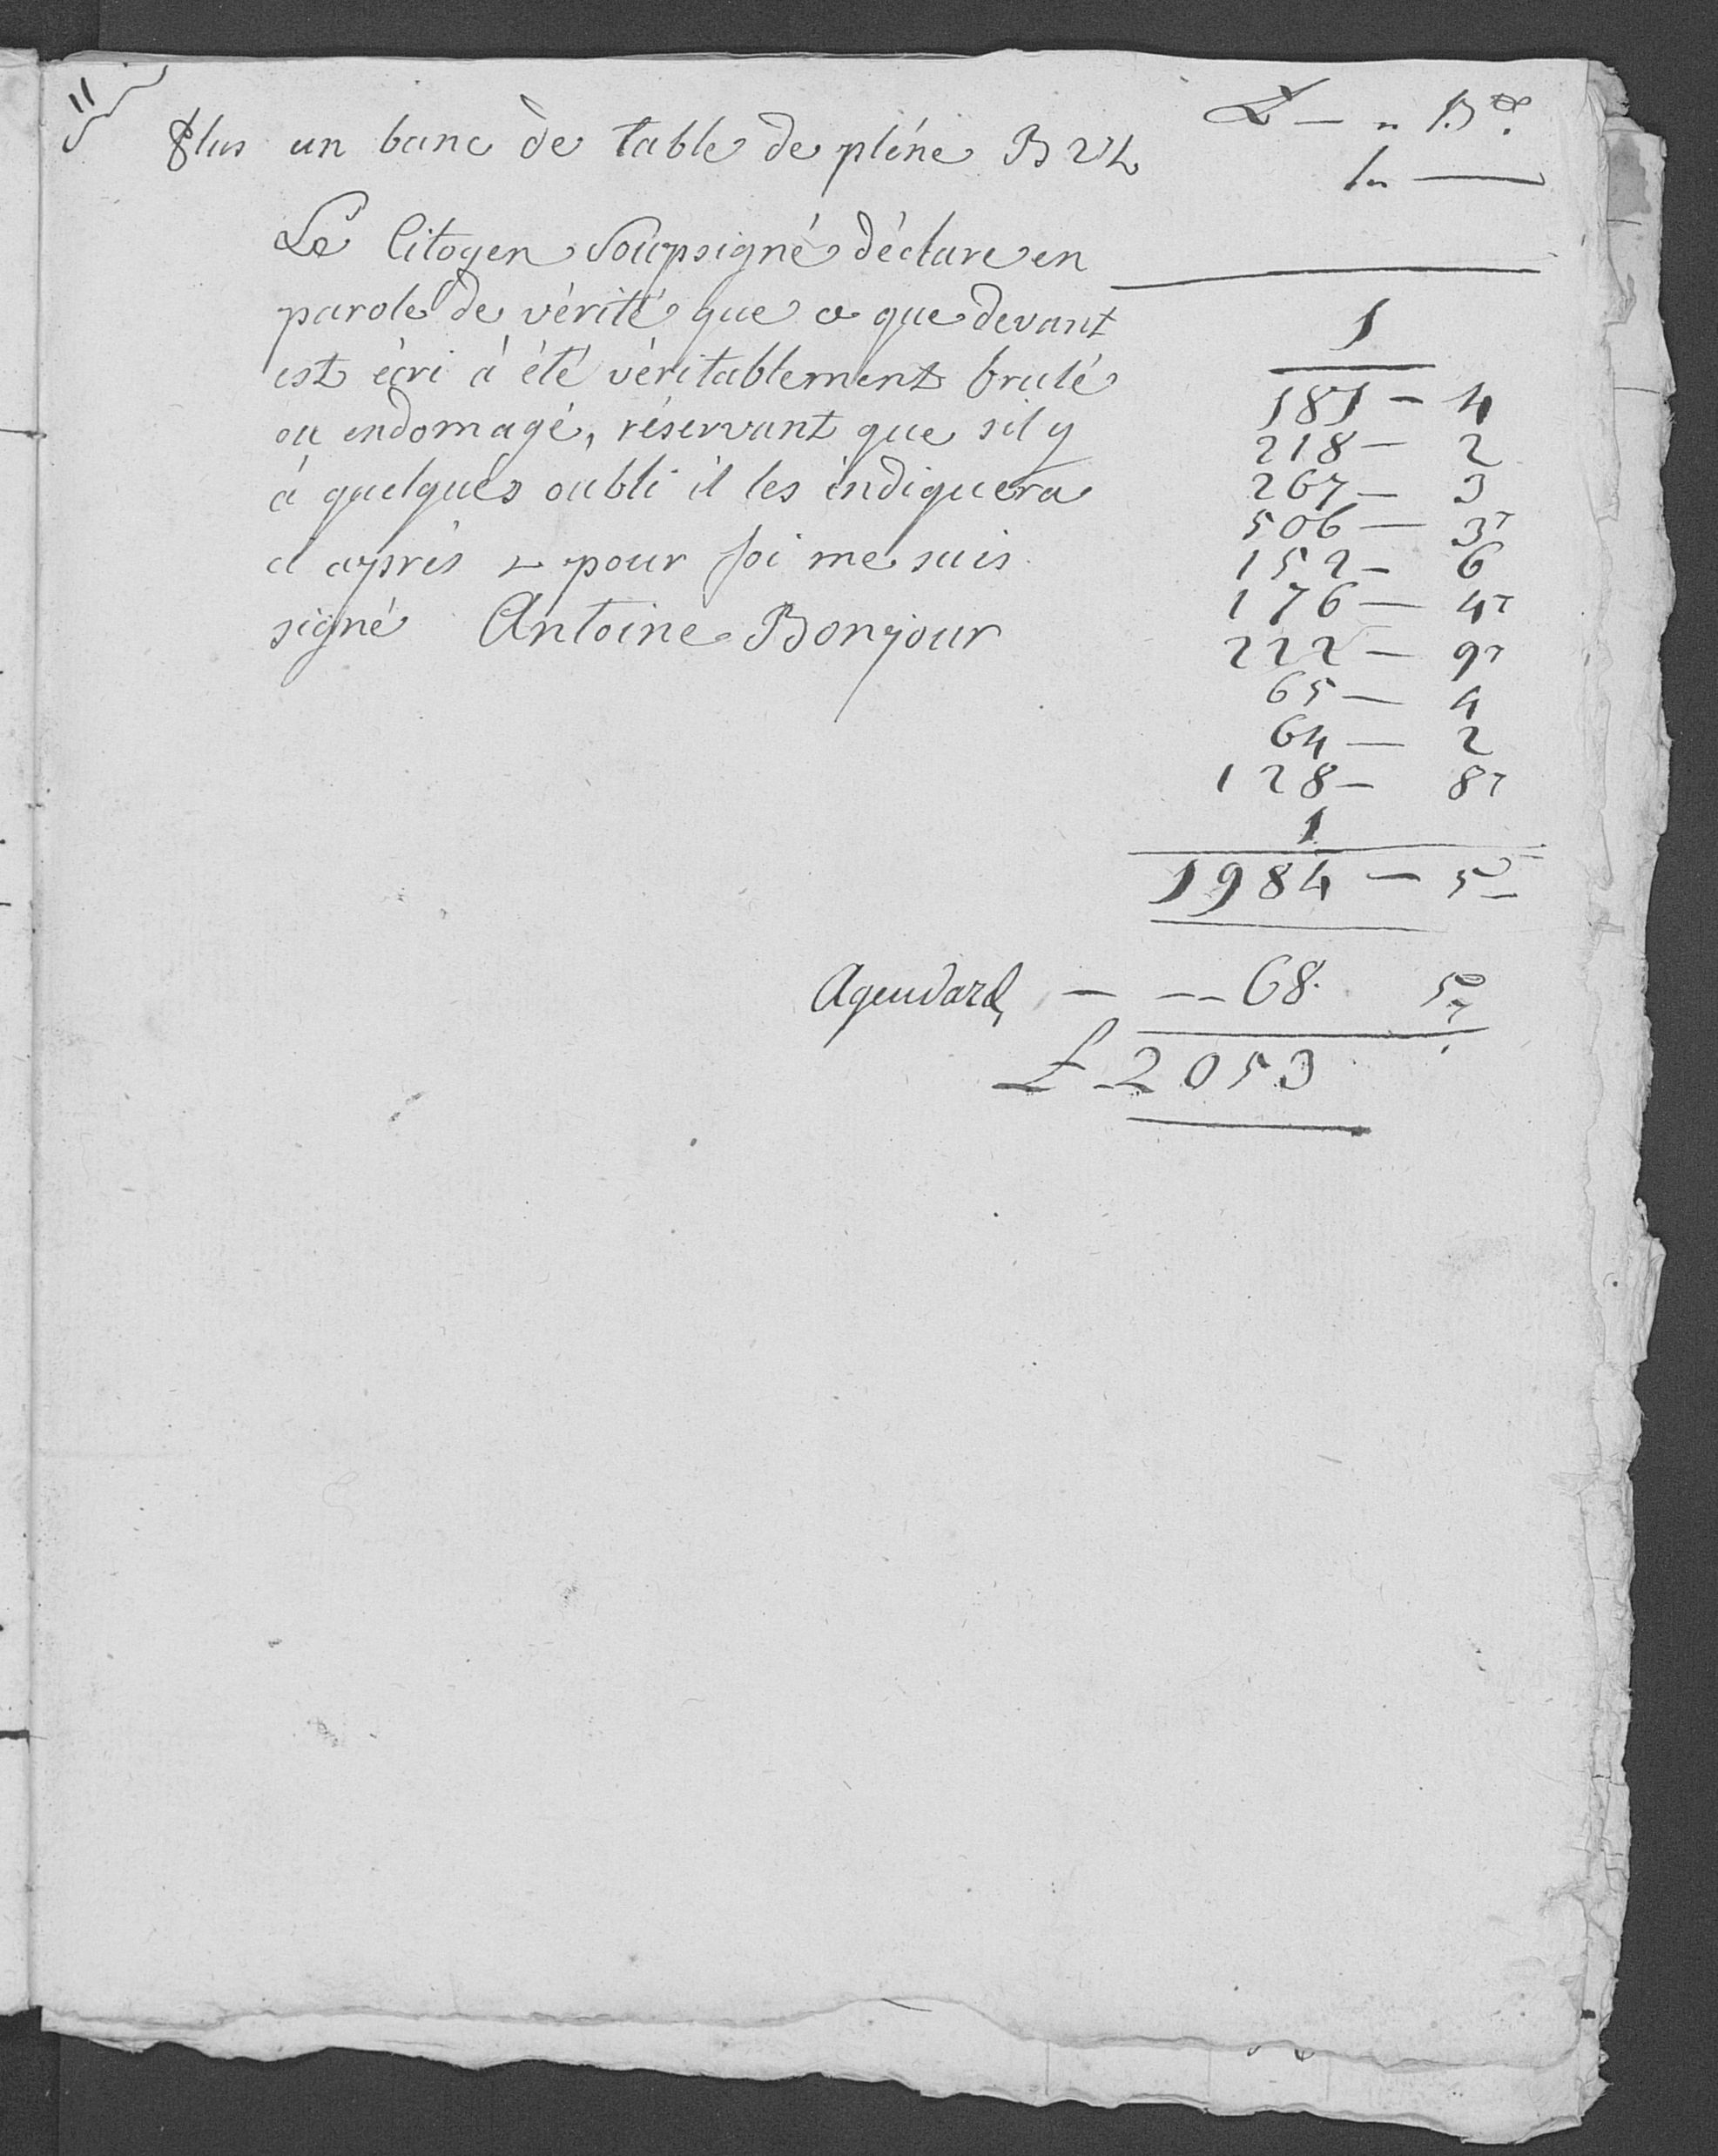 11
L — " Bz.
Plus un banc de table de pléne B 2 L
1 " —
Le Citoyen Soupsigné déclare en
parole de vérité que ce que devant
est écri à été véritablement brulé
ou endomagé, réservant que sil y
à quelqués oubli il les indiquera
d après & pour foi me suis
signé Antoine Bonjour
1
181 — 4
218 — 2
267 — 3
506 — 3
152 — 6
176 — 4
222 — 9
65 — 4
64 — 2
128 — 8
1
1984 — 5
Agendard — — 68. 5
£ 2053